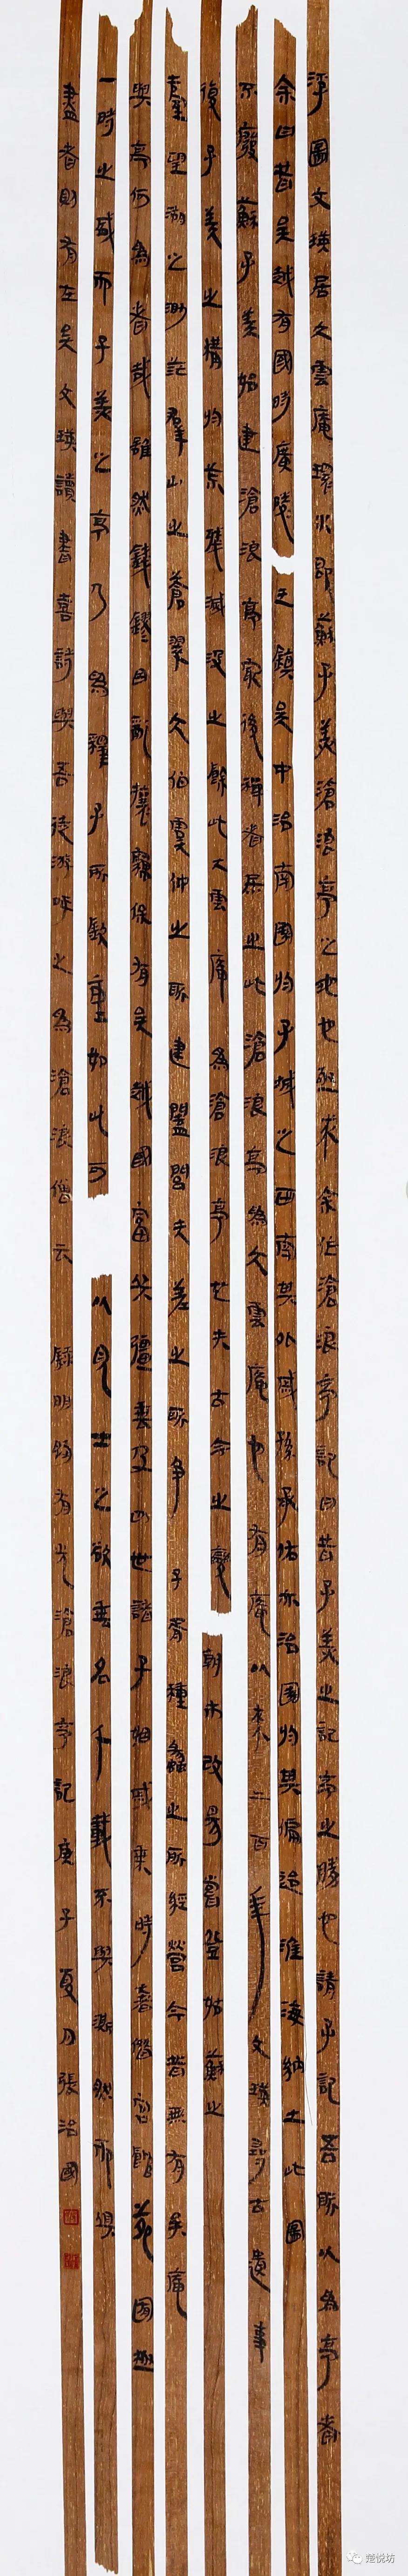 浮圖文瑛居大雲庵環水即蘇子美滄浪亭之地也亟求余作滄浪亭記曰昔子美之記亭之勝也請子記吾所以為亭者
余曰昔吳越有國時廣陵王鎮吳中治南園於子城之西南其外戚孫承佑亦治園於其偏迨淮海納土此園
不廢蘇子美始建滄浪亭最後禪者居之此滄浪亭為大雲庵也有庵以來二百年文瑛尋古遺事
復子美之構於荒殘滅沒之餘此大雲庵為滄浪亭也夫古今之變朝市改易嘗登姑蘇之
臺望湖之渺茫群山之蒼翠太伯虞仲之所建闔閭夫差之所爭子胥種蠡之所經營今皆無有矣庵
與亭何為者哉雖然錢鏐因亂攘竊保有吳越國富兵彊垂及四世諸子姻戚乘時奢僭宮館苑囿極
一時之盛而子美之亭乃為釋子所欽重如此可以見士之欲垂名千載不與澌然而俱
盡者則有在矣文瑛讀書喜詩與吾徒游呼之為滄浪僧云 錄明歸有光滄浪亭記庚子夏月張治國
楚悦坊